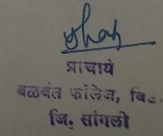 प्राचार्य
बळवंत कॉलेज, वि
जि. सांगली